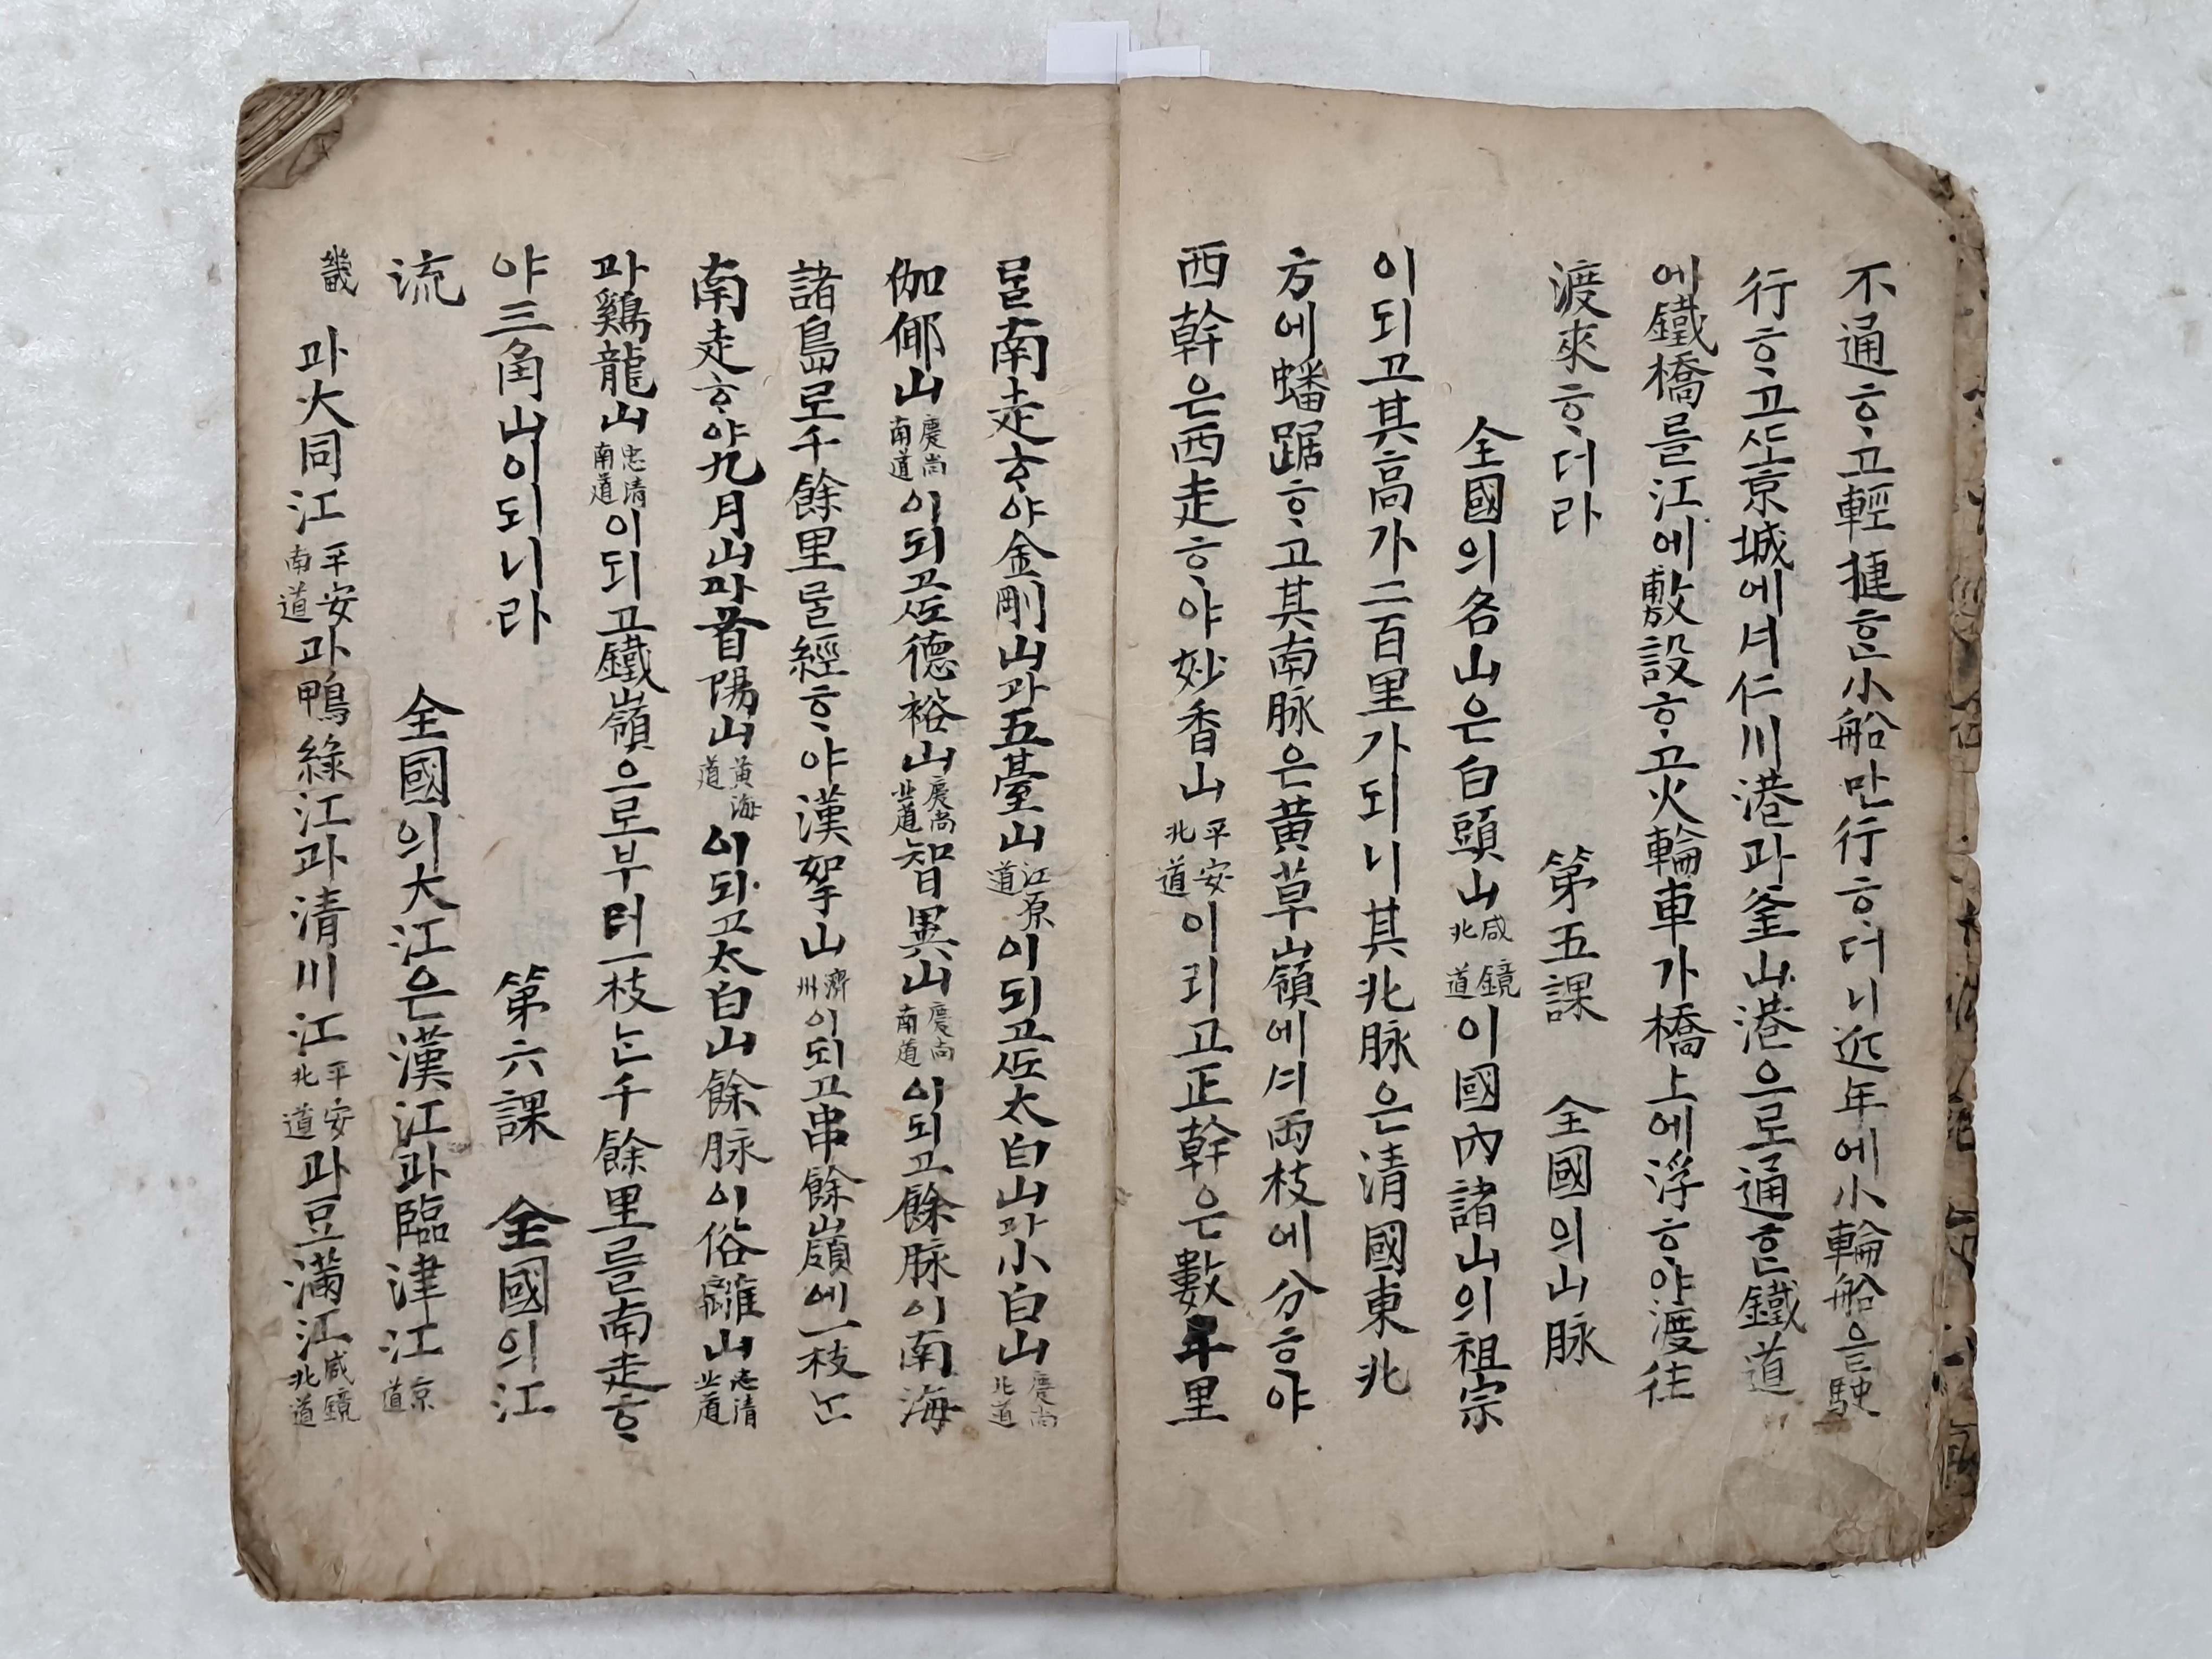 不通ᄒᆞ고輕捷ᄒᆞᆫ小船만行ᄒᆞ더니近年에小輪船을駛
行ᄒᆞ고ᄯᅩ京城에셔仁川港과釜山港으로通ᄒᆞᆫ鐵道
에鐵橋를江에敷設ᄒᆞ고火輪車가橋上에浮ᄒᆞ야渡往
渡來ᄒᆞ더라
第五課 全國의山脉
全國의名山은白頭山咸鏡北道이國內諸山의祖宗
이되고其高가二百里가되니其北脉은清國東北
方에蟠踞ᄒᆞ고其南脉은黃草嶺에셔両枝에分ᄒᆞ야
西幹은西走ᄒᆞ야妙香山平安北道이되고正幹은數千里
를南走ᄒᆞ야金剛山과五臺山江原道이되고ᄯᅩ太白山과小白山慶尙北道
伽倻山慶尙南道이되고ᄯᅩ德裕山慶尙北道智異山慶尙南道이되고餘脉이南海
諸島로千餘里ᄅᆞᆯ經ᄒᆞ야漢拏山濟州이되고串餘嶺에一枝ᄂᆞᆫ
南走ᄒᆞ야九月山과首陽山黃海道이되고太白山餘脉이俗離山忠淸北道
과鷄龍山忠清南道이되고鐵嶺으로부터一枝ᄂᆞᆫ千餘里를南走ᄒᆞ
야三角山이되니라
第六課 全國의江
流
全國의大江은漢江과臨津江京道
畿과大同江平安南道과鴨綠江과清川江平安北道과豆滿江咸鏡北道